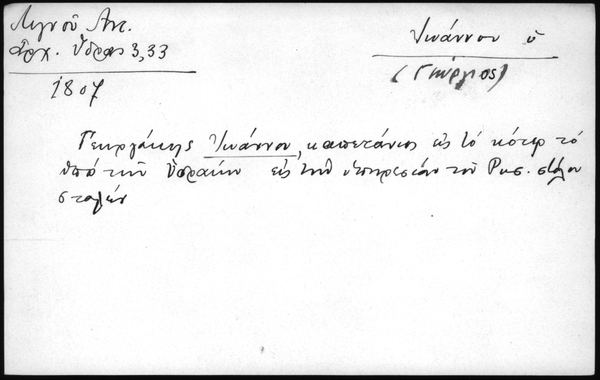 Λιγνοῦ Ἀντ.
Ἀρχ. Ὕδρας 3,33
1807
Ἰωάννου ὁ
(Γεώργιος)
Γεωργάκης Ἰωάννου, καπετάνιος εἰς τὸ κότερ τὸ
ὑπὸ τῶν Ὑδραίων εἰς τὴν ὑπηρεσίαν τοῦ Ρωσ. στόλου
σταλέν